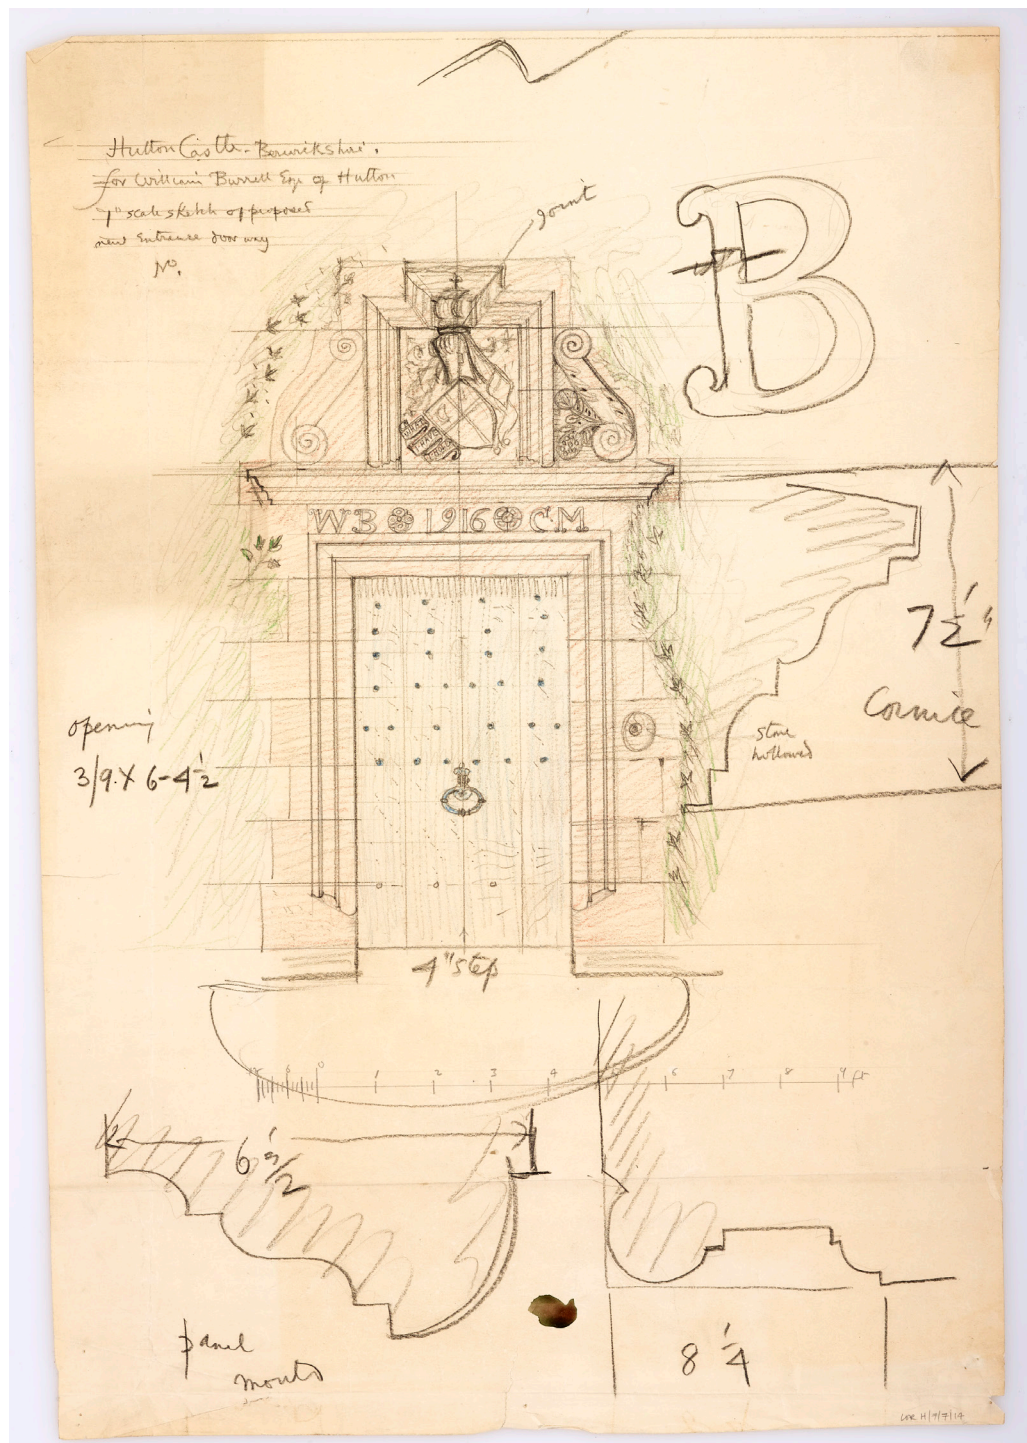 Hutton Castle - Berwikshir.
for William Burrell Esq of Hutton
1" scale sketch of proposed
new Entrance door way
No.
Joint
B
WB 1916 CM
7½"
Cornice
stone
hollowed
opening
3/9 X 6-4½
4" step
0 1 2 3 4 5 6 7 8 9 ft
6½
8¼
panel
mould
LOR H/9/7/14